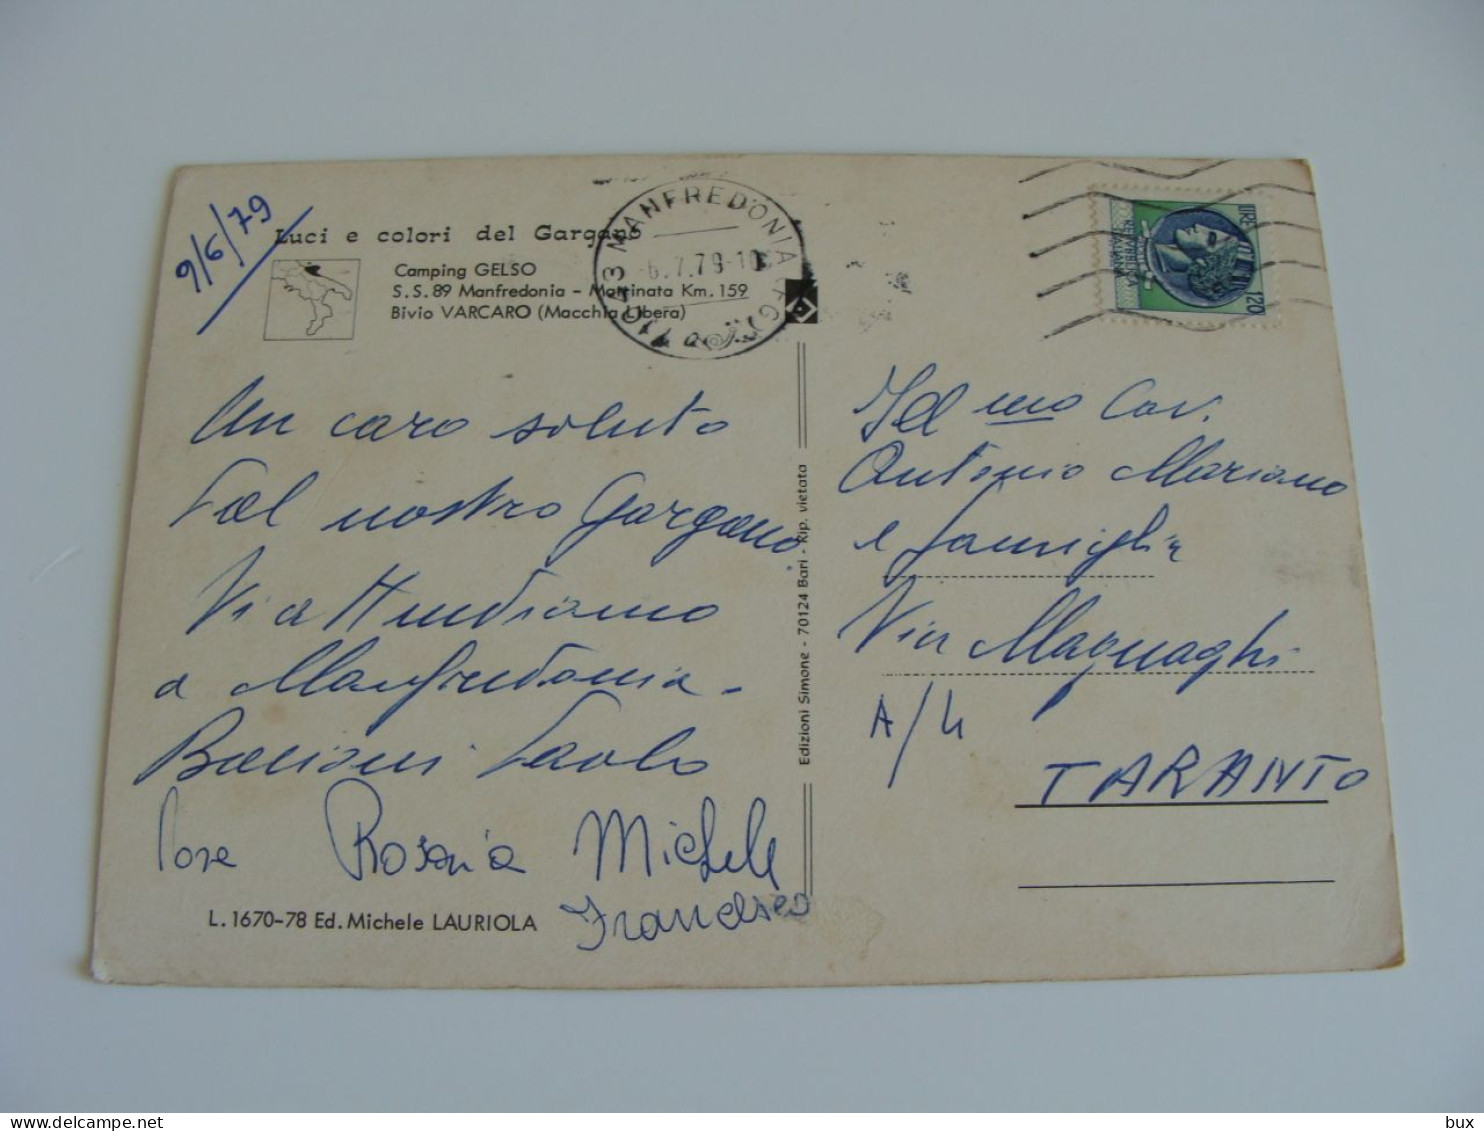 9/6/79
Luci e colori del Gargano
Camping GELSO
S.S.89 Manfredonia - Mattinata Km. 159
Bivio VARCARO (Macchia Libera)
71043 MANFREDONIA (FG)
6.7.79-10
LIRE 120
REPVBBLICA
ITALIANA
Un caro saluto
dal nostro Gargano.
Vi attendiamo
a Manfredonia -
Paolo
Rosaria Michele
Francesco
L. 1670-78 Ed. Michele LAURIOLA
Edizioni Simone - 70124 Bari - Rip. vietata
Cav.
Antonio Mariano
e famiglia
Via Magnaghi
A/4
TARANTO
bux